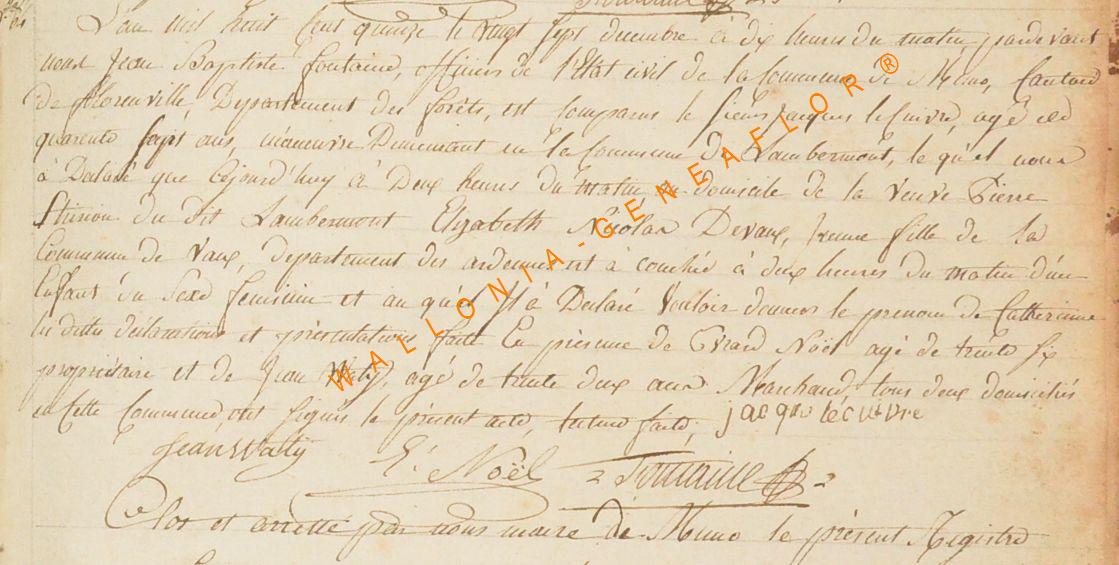 L'an mil huit cens quinze le vingt sept decembre à dix heures du matin pardevant
nous Jean Baptiste fontaine, officiers de l'Etat civil de la Commune de Muno, Canton
De florenville, Departement des forêts, est comparus le sieur Jacques lecuivre, agé de
quarente sept ans, manœuvre Demeurant en la Commune De Lambermont, le quel nous
à Declaré que cejourd'huy à Deux heures du matin au domicile de la veuve Pierre
du dit Lambermont Elizabeth Nicolas Devaux, jeune fille de la
Commune de Vaux, departement des ardennes est à couchée à deux heures du matin d'un
Enfant du sexe feminin et au quel Il à Declaré vouloir donner le prenom de Catherinne
les dittes déclarations et présentations faite En présence de Erard Noël agé de trente six
propriétaire et de Jean Waty, agé de trente deux ans Marchand, tous deux domiciliés
en Cette Commune, ont signés le présent acte, lecture faite, jacque lecuivre
Jean Waty E. Noël Fontaine
Clos et arretté par nous maire de Muno le présent Registre
WALLONIA-GENEAFLOR®